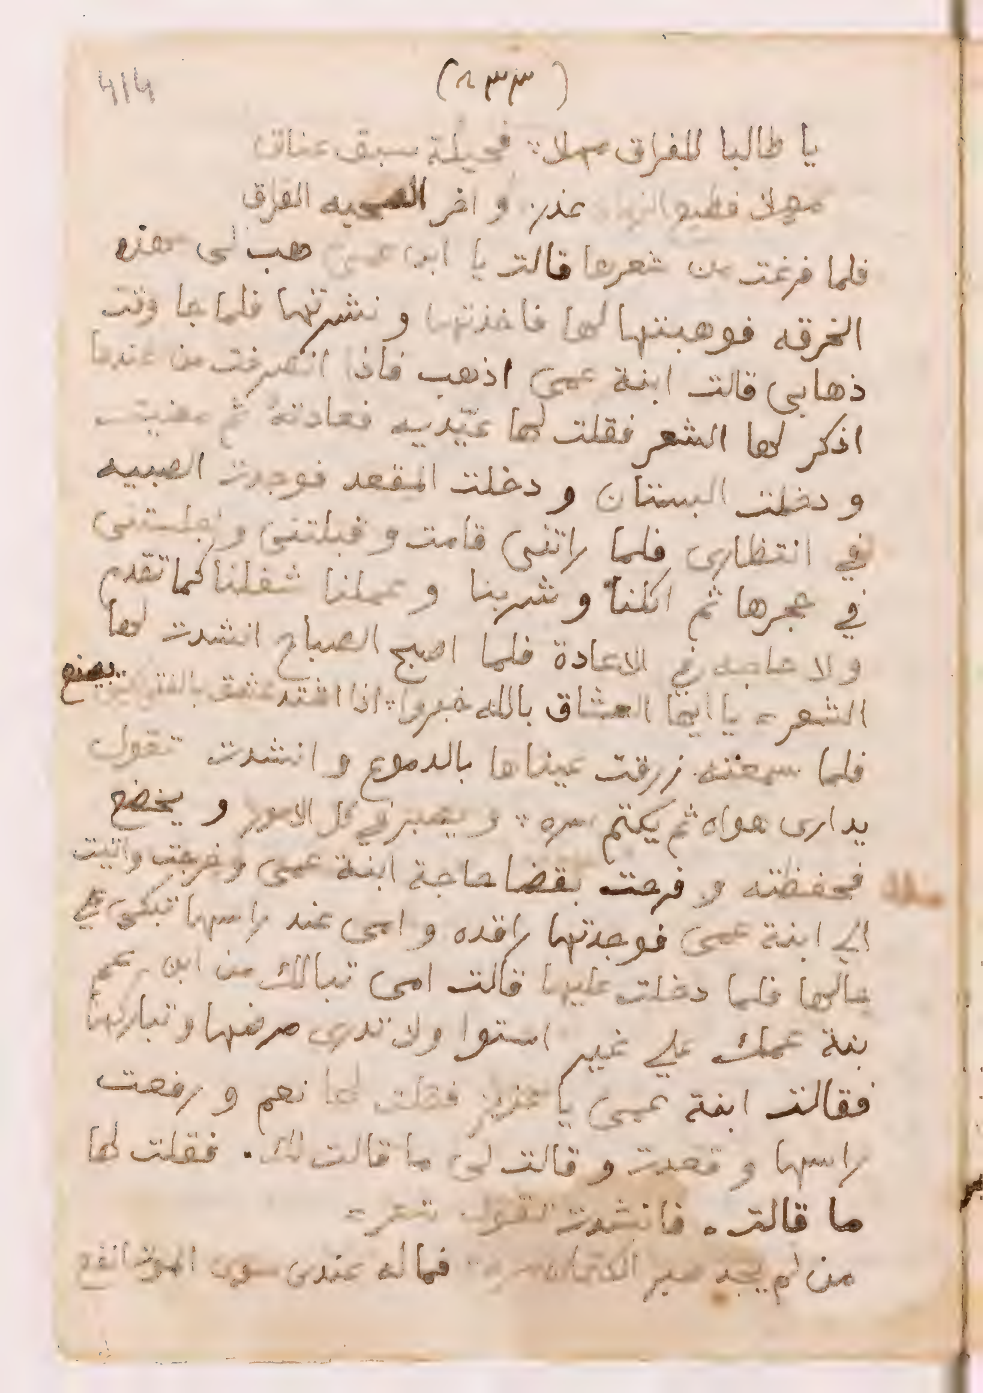 (٨٣٣)
414
يا طالبا للفراق مهلا ؞ فحيلة سبق عناق
مهلا فطبع الزمان غدر و اخر الصحبه الفراق
فلما فرغت من شعرها قالت يا ابن عمي هب لى هذه
الخرقه فوهبتها لها فاخذتها و نشرتها فلما جا وقت
ذهابى قالت ابنة عمى اذهب فاذا انصرفت من عندها
اذكر لها الشعر فقلت لها عيّديه فعادته ثم مضيت
و دخلت البستان و دخلت المقعد فوجدت الصبيه
في انتظارى فلما راتنى قامت و قبلتنى و اجلستنى
في حجرها ثم اكلنا و شربنا و عملنا شغلنا كما تقدم
ولا حاجه في الاعادة فلما اصبح الصباح انشدت لها
الشعر = يا ايها العشاق بالله خبروا ؞ اذا اشتد عشق بالفتى كيف يصنع
فلما سمعته زرقت عيناها بالدموع و انشدت تقول
يدارى هواه ثم يكتم سره ؞ و يصبر في كل الامور و يخضع
فحفظته و فرحت بقضا حاجة ابنة عمى و خرجت واتيت
الي ابنة عمى فوجدتها راقده و امى عند راسها تبكى علي
حالها فلما دخلت عليها قالت امى تبالك من ابن عم
بنة عمك علي غير استوا ولا تدرى مرضها وتباريها
فقالت ابنة عمى يا عزيز فقلت لها نعم و رفعت
راسها و قعدت و قالت لى ما قالت لك . فقلت لها
ما قالت . فانشدت تقول شعر =
من لم يجد صبر الكتمان سره ؞ فماله عندى سوى الموت انفع